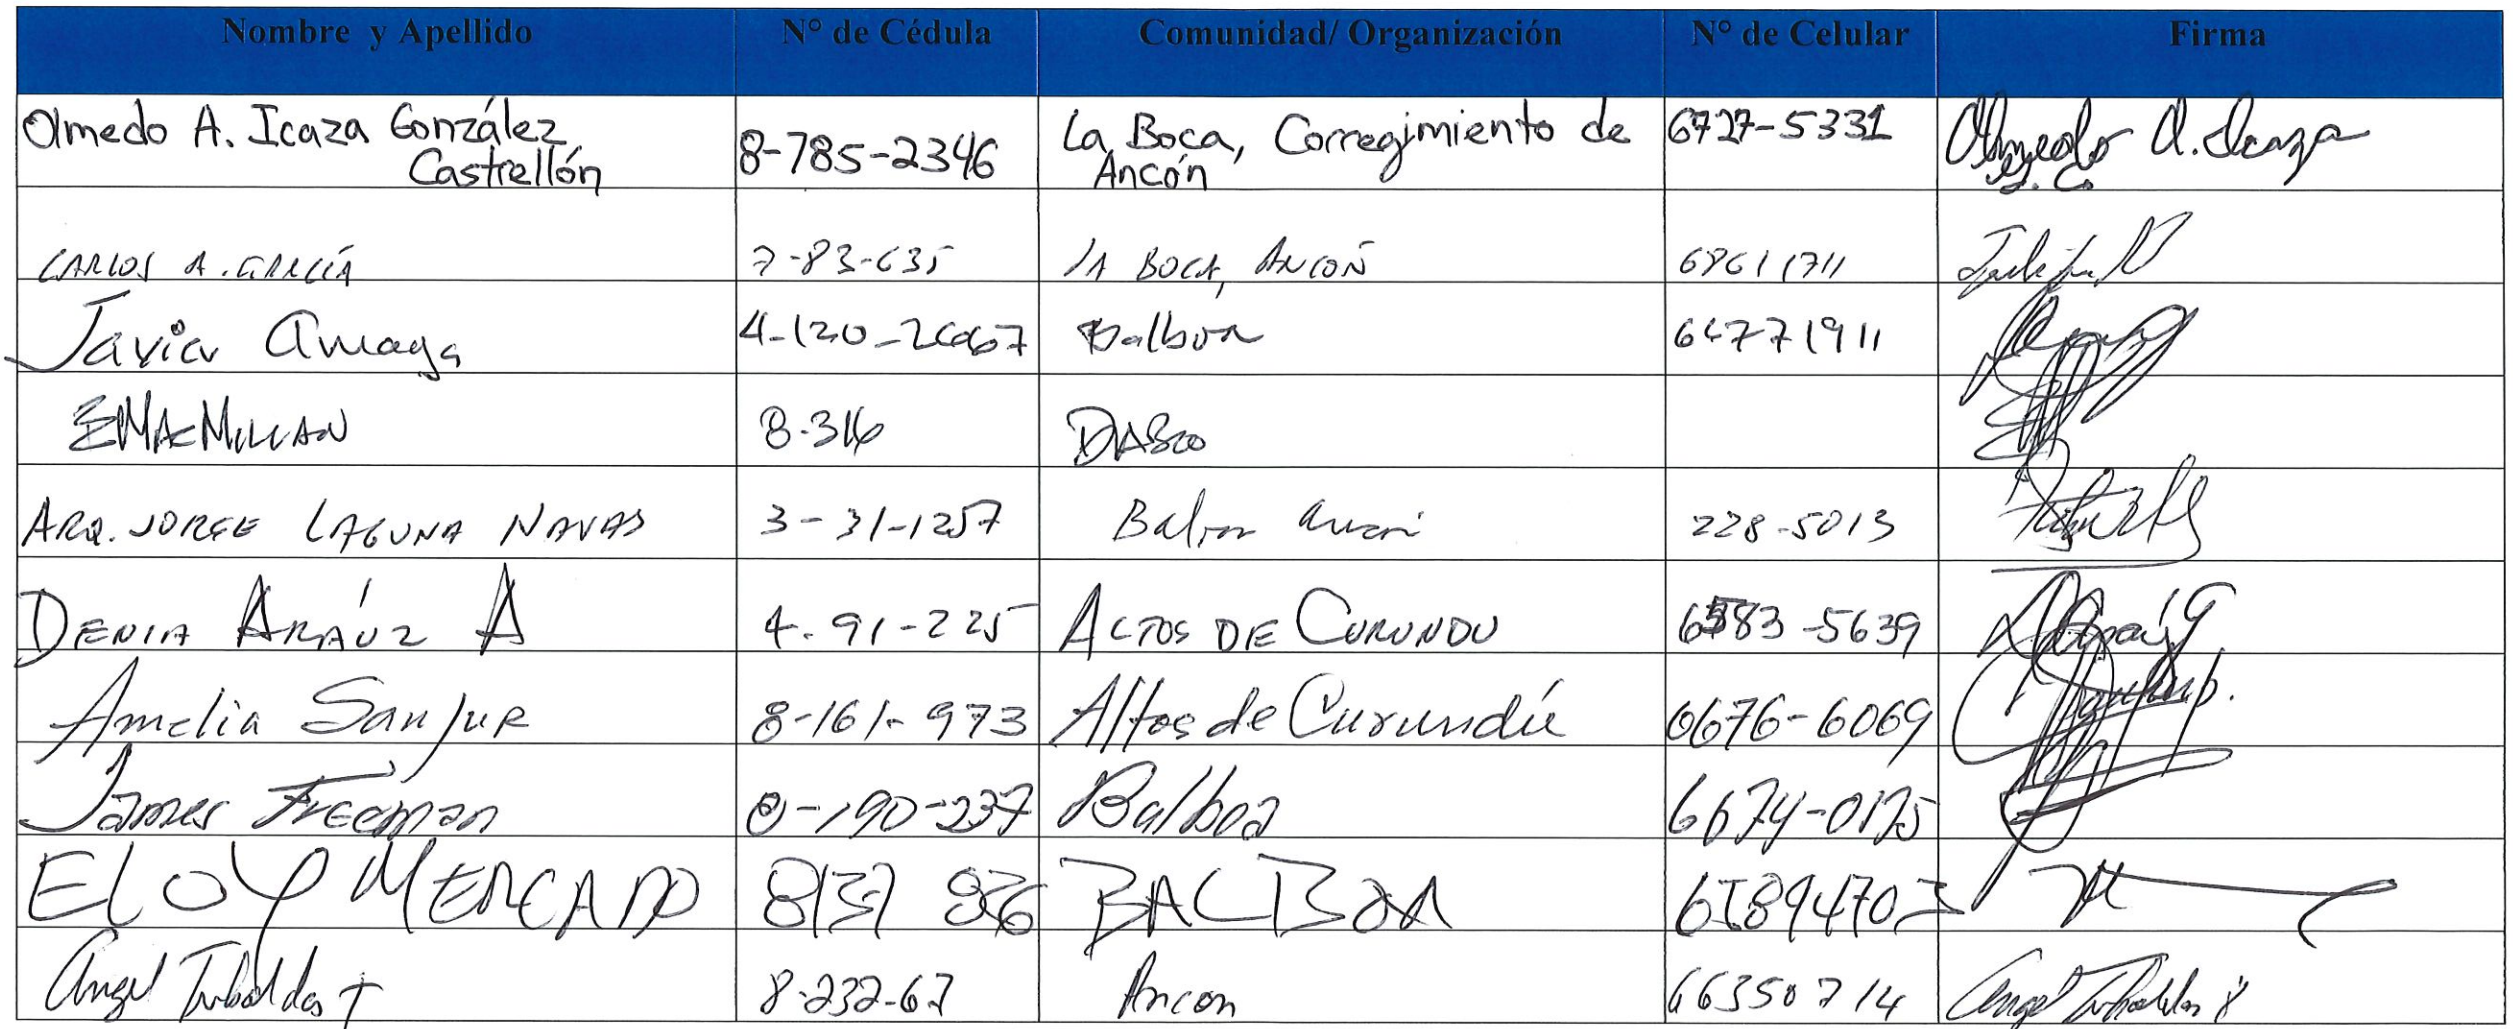 Nombre y Apellido N° de Cédula Comunidad/ Organización N° de Celular Firma
Olmedo A. Icaza González 8-785-2346 La Boca, Corregimiento de 6727-5331 Olmedo A. Icaza
Castrellón Ancón G. C.
CARLOS A. GARCÍA 7-83-635 LA BOCA, ANCON 68611711
Javier 4-120-2667 Balboa 64771911
E MACMILLAN 8-316
ARQ. JORGE LAGUNA NAVAS 3-31-1257 Balboa Ancón 228-5013
DENIA ARAÚZ A 4-91-225 ALTOS DE CURUNDU 6583-5639
Amelia Sanjur 8-161-973 Altos de Curundú 6676-6069
James Freeman 8-190-237 Balboa 6674-0175
ELOY MERCADO 8137 836 BALBOA
Angel Tribaldos T 8-232-67 Ancon 66350714 Angel Tribaldos